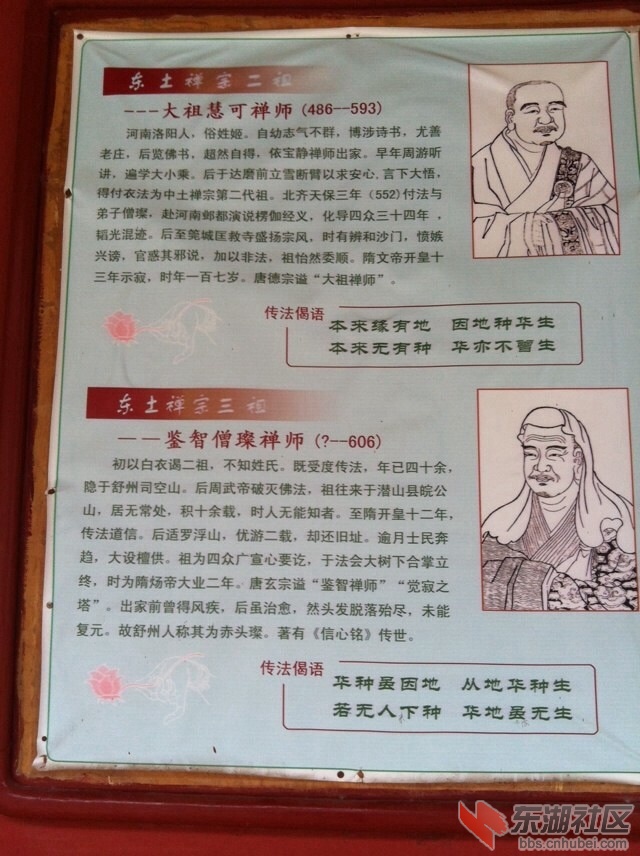 东土禅宗二祖
---大祖慧可禅师 (486--593)
河南洛阳人，俗姓姬。自幼志气不群，博涉诗书，尤善
老庄，后览佛书，超然自得，依宝静禅师出家。早年周游听
讲，遍学大小乘。后于达磨前立雪断臂以求安心，言下大悟，
得付衣法为中土禅宗第二代祖。北齐天保三年 (552) 付法与
弟子僧璨，赴河南邺都演说楞伽经义，化导四众三十四年，
韬光混迹。后至筦城匡救寺盛扬宗风，时有辨和沙门，愤嫉
兴谤，官惑其邪说，加以非法，祖怡然委顺。隋文帝开皇十
三年示寂，时年一百七岁。唐德宗谥“大祖禅师”。
传法偈语
本来缘有地 因地种华生
本来无有种 华亦不曾生
东土禅宗三祖
---鉴智僧璨禅师 (?--606)
初以白衣谒二祖，不知姓氏。既受度传法，年已四十余，
隐于舒州司空山。后周武帝破灭佛法，祖往来于潜山县皖公
山，居无常处，积十余载，时人无能知者。至隋开皇十二年，
传法道信。后适罗浮山，优游二载，却还旧址。逾月士民奔
趋，大设檀供。祖为四众广宣心要讫，于法会大树下合掌立
终，时为隋炀帝大业二年。唐玄宗谥“鉴智禅师”“觉寂之
塔”。出家前曾得风疾，后虽治愈，然头发脱落殆尽，未能
复元。故舒州人称其为赤头璨。著有《信心铭》传世。
传法偈语
华种虽因地 从地华种生
若无人下种 华地虽无生
东湖社区
bbs.cnhubei.com